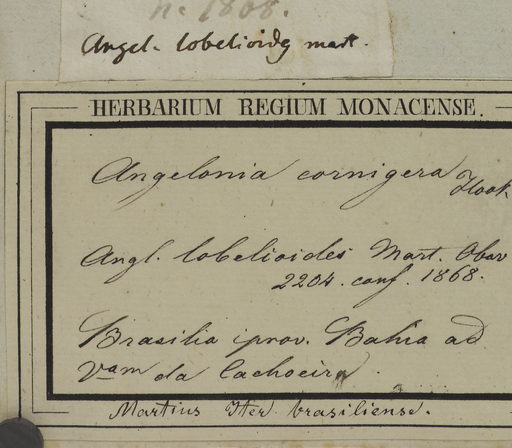 n. 1868.
Angel. lobelioides mart.
HERBARIUM REGIUM MONACENSE.
Angelonia cornigera Hook
Angl. lobelioides Mart. Obsv
2204. conf. 1868.
Brasilia prov. Bahia ad
Vam da Cachoeira.
Martius Iter brasiliense.